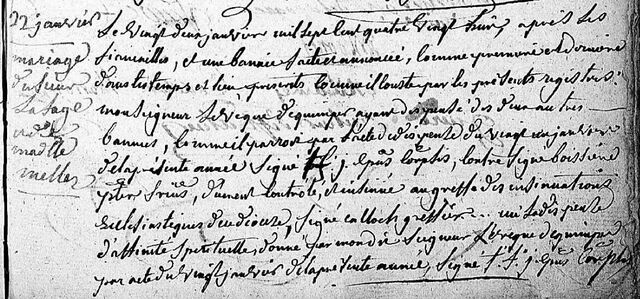 22 janvier
mariage
du sieur
La fage
et de
madlle
mellez
Le vingt deux janvier mil sept cent quatre vingt huit après les
fiancailles, et une bannie faite et annoncée, comme premiere et derniere
dans le temps et lieu presents comme il conste par les présents registres
monseigneur L'eveque de quimper ayant dispensé des deux autres
bannies, comme il paroit par l'acte de dispense du vingt un janvier
de la présente année signé † f. j. Epus Corisop., contre signé boissiere
pter srius, dument controlé, et insinué au greffe des insinuations
Ecclesiastiques du diocese, signé calloch greffier... vu la dispense
d'affinité spirituelle, donnée par mon dit seigneur L'eveque de quimper
par acte du vingt janvier de la présente année, signé † f. j. Epus